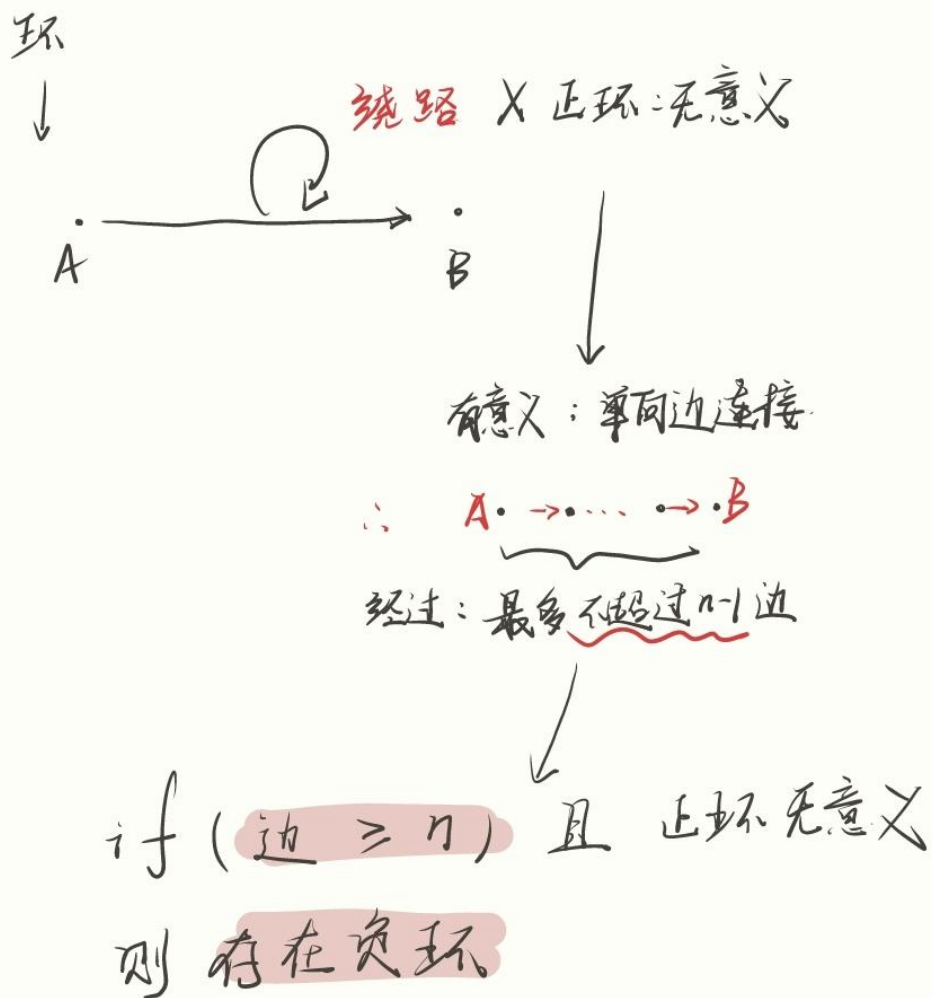 环
绕路 X 正环:无意义
A B
有意义:单向边连接
∴ A· →·... ·→·B
经过:最多不超过n-1边
if (边 ≥ n) 且 正环无意义
则 存在负环